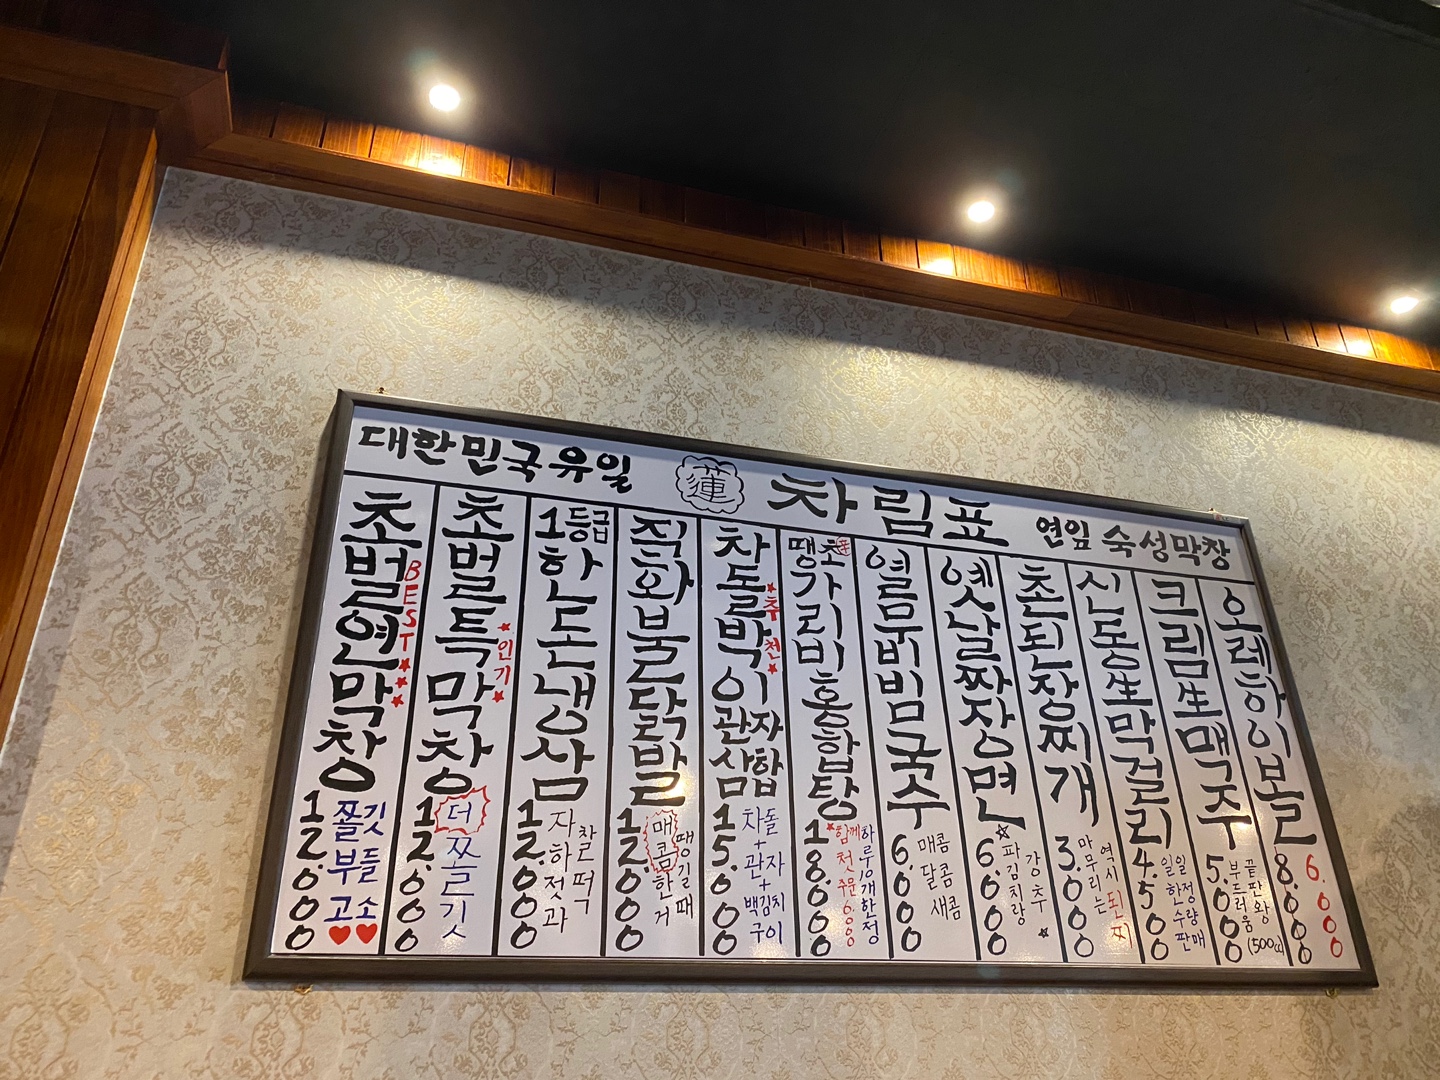 대한민국유일 蓮 차림표 연잎 숙성막창
초벌연막창 BEST
12.000
쫄깃
부들
고소
초벌특막창 인기
12.000
더
쫄깃
1등급
한돈냉삼
12.000
찰떡
자하젓과
직화불닭발
12000
땡길때
매콤한거
차돌박이 추천
관자
삼합
15.000
차돌
+
관자
+
백김치
구이
땡초
가리비홍합탕
18000
하루10개한정
함께
첫주문6000
열무비빔국수
6.000
매콤
달콤
새콤
옛날짜장면
6.000
강추
파김치랑
촌된장찌개
3.000
역시 된찌
마무리는
신동生막걸리
4.500
일정수량
일한판매
크림生맥주
5.000
끝판왕
부드러움
(500cc)
오레하이볼
8.000
6.000